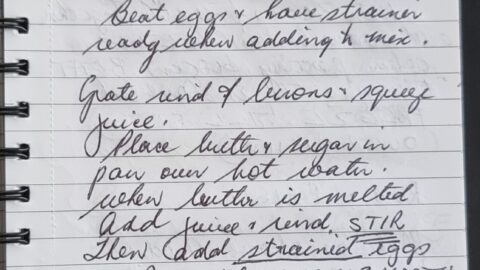 Beat eggs & have strainer
ready when adding to mix.
Grate rind of lemons & squeeze
juice.
Place butter & sugar in
pan over hot water.
when butter is melted
add juice & rind. STIR
Then add strained eggs